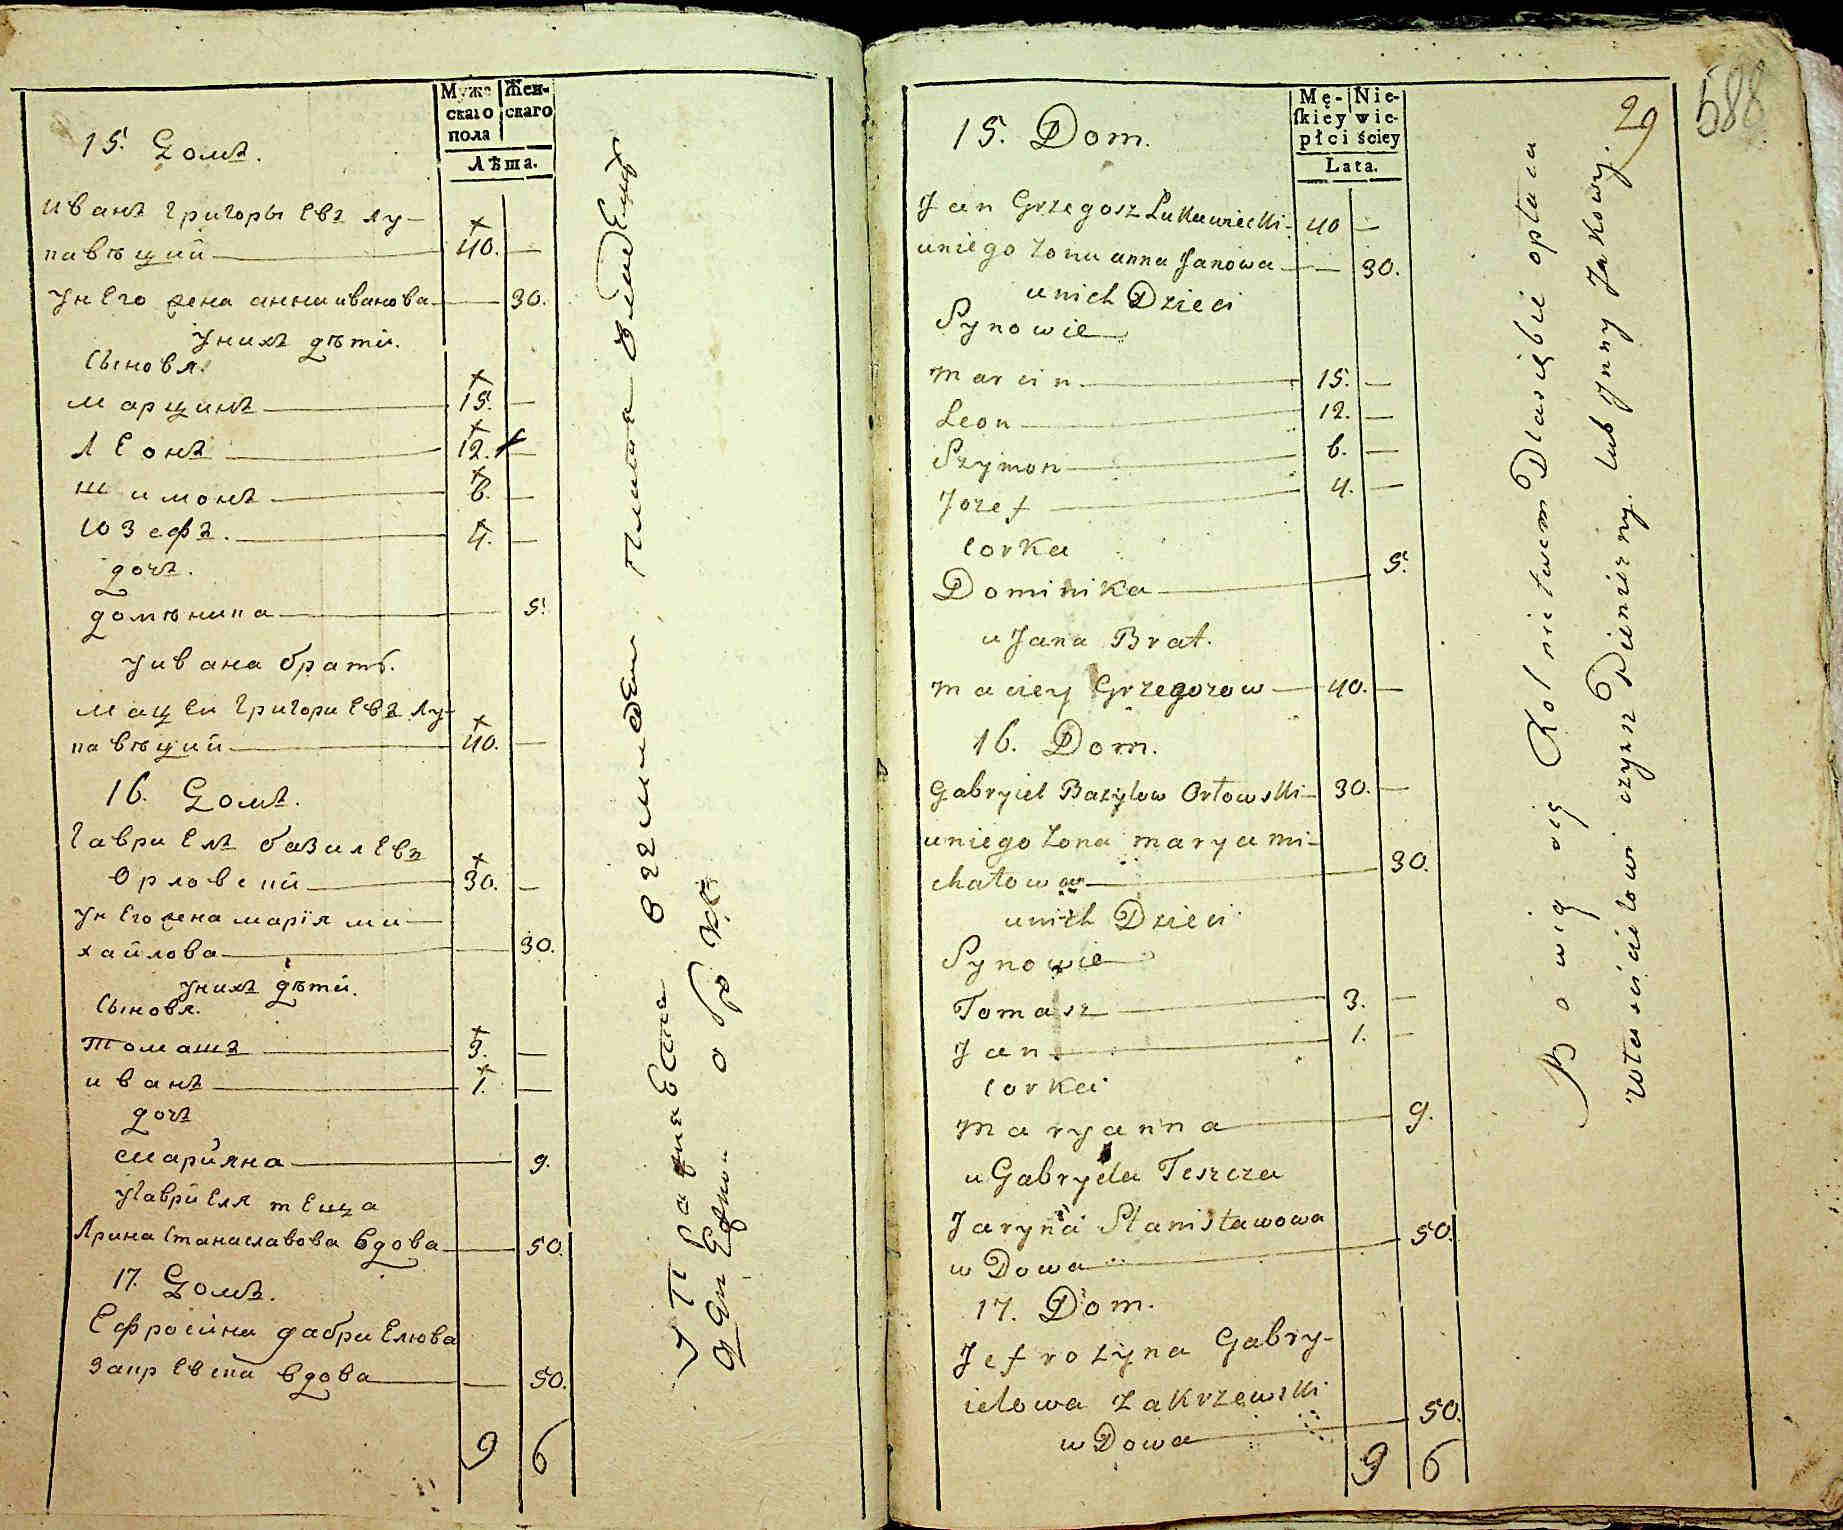 Муже
скаго
пола
Жен-
скаго
Лѣта.
15. Домъ.
Иванъ Григорыевъ Лу-
кавѣцкий 40. —
У него жена анна иванова — 30.
У нихъ дѣти.
Сыновя.
Марцинъ 15. —
Леонъ 12. —
Шимонъ 6. —
Юзефъ. 4. —
дочъ.
домѣника 5.
У ивана братъ.
Мацеи Григориевъ Лу-
кавѣцкий 40. —
16. Домъ.
Гавриелъ базилевъ
Орловский 30. —
У него жена мария ми-
хайлова 30.
У нихъ дѣти.
Сыновя.
Томашъ 3. —
иванъ 1. —
дочъ
Марияна 9.
У Гавриеля теща
Ярина Станиславова вдова 50.
17. Домъ.
Ефросина габриелюва
Закревска вдова 50.
9 6
29
588
Mę-
ſkiey
płci
Nie-
wie-
ściey
Lata.
15. Dom.
Jan Grzegosz Lukawiecki 40 —
u niego żona anna Janowa — 30.
u nich Dzieci
Synowie
Marcin 15. —
Leon 12. —
Szymon 6. —
Jozef 4. —
corka
Dominika 5.
u Jana Brat.
Maciey Grzegorow 40. —
16. Dom.
Gabryiel Bazylow Orłowski 30. —
u niego żona marya mi-
chałowa 30.
u nich Dzieci
Synowie
Tomasz 3. —
Jan 1. —
corka
Maryanna 9.
u Gabryela Teszcza
Jaryna Stanisławowa
wDowa 50.
17. Dom.
Jefrozyna Gabry-
ielowa Zakrzewski
wDowa 50.
9 6
Bowią się Rolnictwem Dla siębie opłaca
właścicielowi czynsz Pienieżny. lub jnny Jakowy.